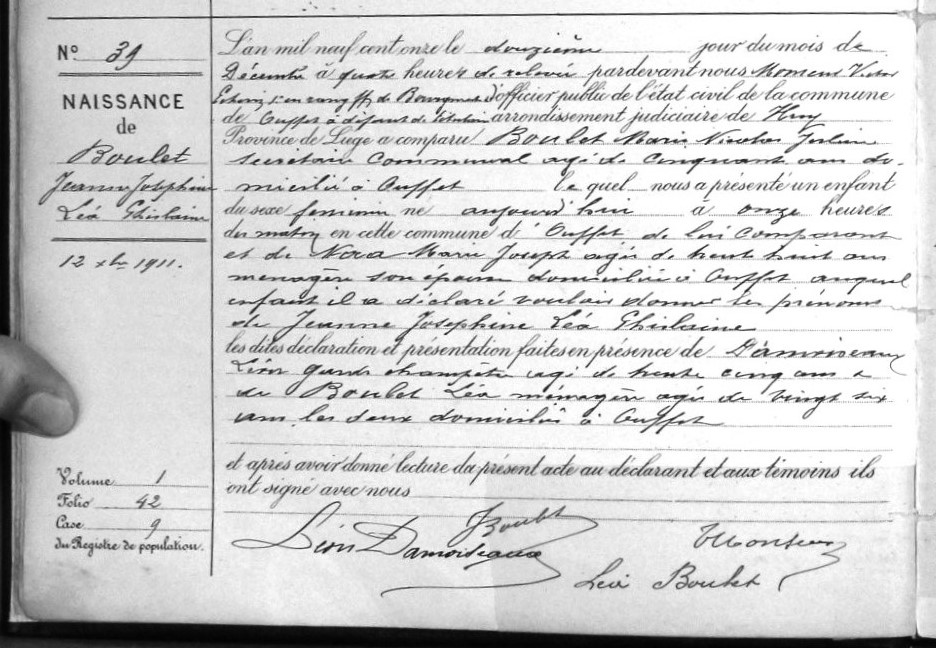 N° 39
NAISSANCE
de
Boulet
Jeanne Josephine
Léa Ghislaine
12 xbre 1911.
Volume 1
Folio 42
Case 9
du Registre de population.
L'an mil neuf cent onze le douzième jour du mois de
Décembre à quatre heures de relevée pardevant nous Victor
Echevin ff de Bourgmestre d'officier public de l'état civil de la commune
de Ouffet à défaut de titulaire arrondissement judiciaire de Huy
Province de Liége a comparu Boulet Marie Nicolas
secrétaire communal agé de cinquante ans do-
micilié à Ouffet lequel nous a présenté un enfant
du sexe feminin né aujourd'hui à onze heures
du matin en cette commune d'Ouffet de lui comparant
et de Marie Joseph agée de trente huit ans
ménagère son épouse domiciliée à Ouffet auquel
enfant il a déclaré vouloir donner les prénoms
de Jeanne Josephine Léa Ghislaine
les dites déclaration et présentation faites en présence de Damoiseaux
Léon garde champêtre agé de trente cinq ans &
de Boulet Léa ménagère agée de vingt six
ans les deux domiciliés à Ouffet
et après avoir donné lecture du présent acte au déclarant et aux témoins ils
ont signé avec nous
Boulet
Léon Damoiseaux
Léa Boulet